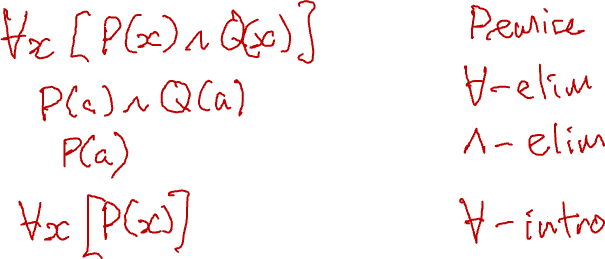 ∀x [P(x) ∧ Q(x)] Premise
P(a) ∧ Q(a) ∀-elim
P(a) ∧-elim
∀x [P(x)] ∀-intro